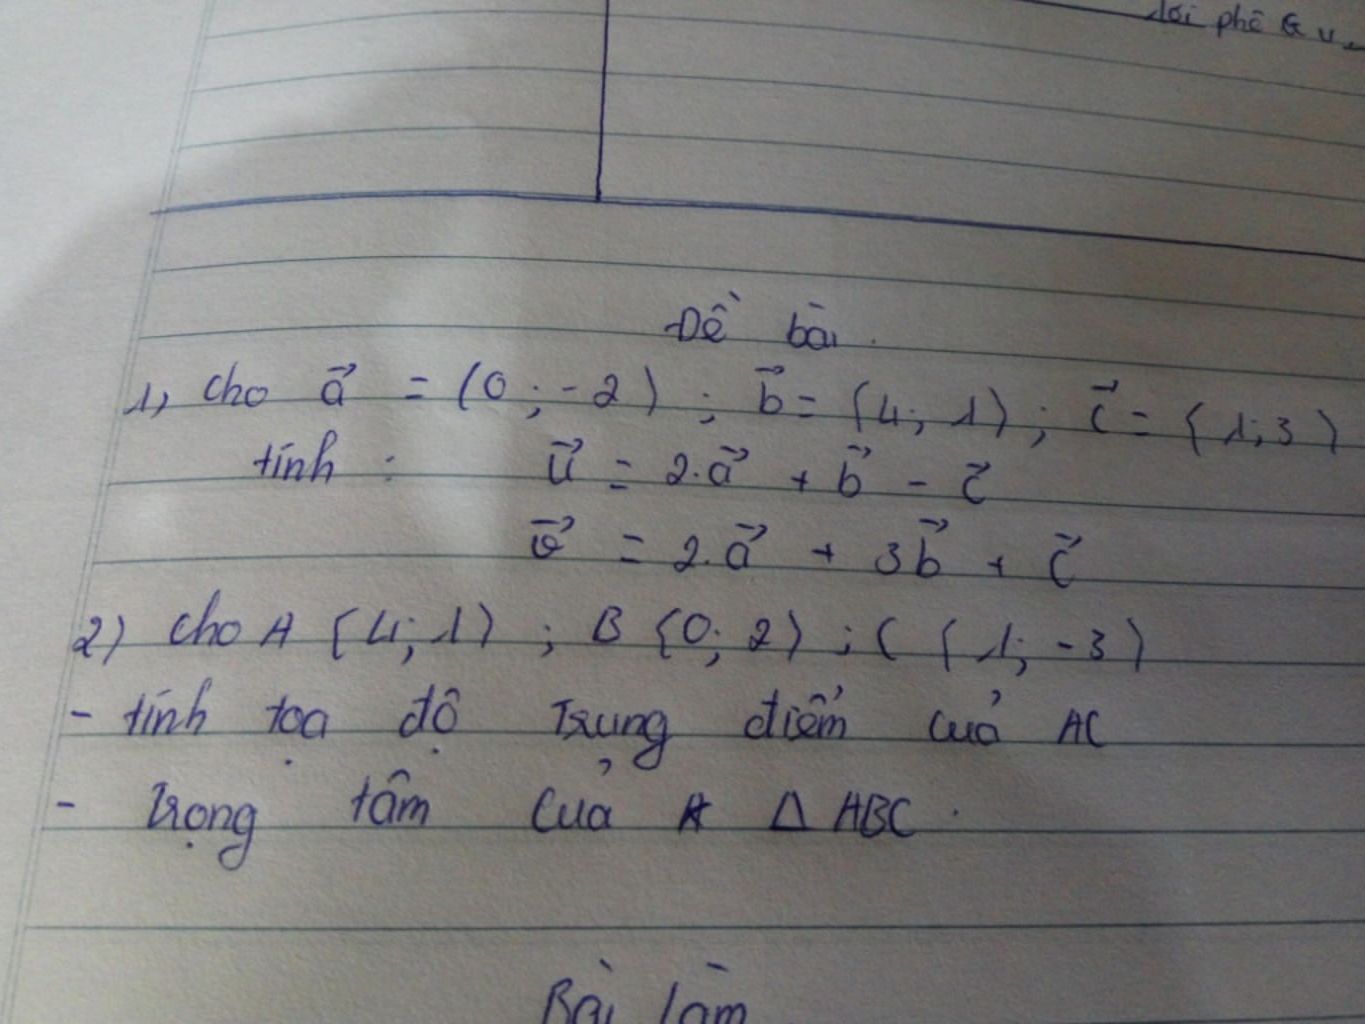 Lời phê G v
Đề bài.
1, cho a⃗ = (0; -2) ; b⃗ = (4; 1) ; c⃗ = (1; 3)
tính : u⃗ = 2.a⃗ + b⃗ - c⃗
v⃗ = 2.a⃗ + 3b⃗ + c⃗
2) cho A (4; 1) ; B (0; 2) ; C (1; -3)
- tính tọa độ trung điểm của AC
- trọng tâm của Δ ABC.
Bài làm